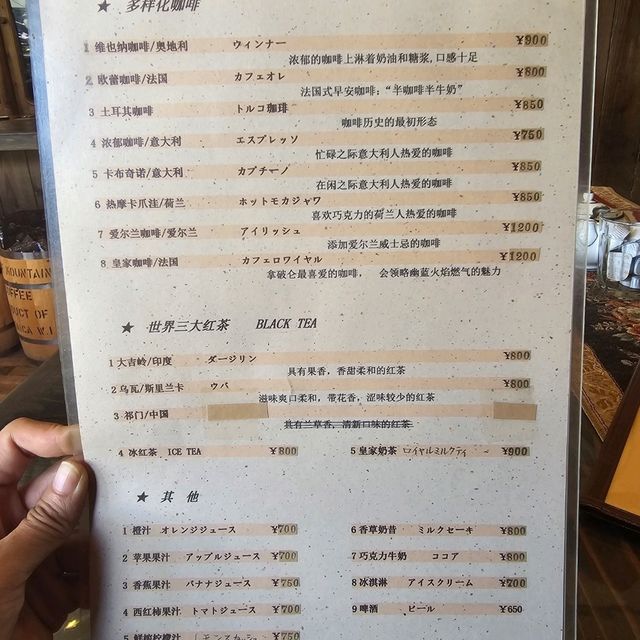 ★ 多样化咖啡
1 维也纳咖啡/奥地利 ウィンナー ¥900
浓郁的咖啡上淋着奶油和糖浆,口感十足
2 欧蕾咖啡/法国 カフェオレ ¥800
法国式早安咖啡；“半咖啡半牛奶”
3 土耳其咖啡 トルコ珈琲 ¥850
咖啡历史的最初形态
4 浓郁咖啡/意大利 エスプレッソ ¥750
忙碌之际意大利人热爱的咖啡
5 卡布奇诺/意大利 カプチーノ ¥850
在闲之际意大利人热爱的咖啡
6 热摩卡爪洼/荷兰 ホットモカジャワ ¥850
喜欢巧克力的荷兰人热爱的咖啡
7 爱尔兰咖啡/爱尔兰 アイリッシュ ¥1200
添加爱尔兰威士忌的咖啡
8 皇家咖啡/法国 カフェロワイヤル ¥1200
拿破仑最喜爱的咖啡， 会领略幽蓝火焰燃气的魅力
★ 世界三大红茶 BLACK TEA
1 大吉岭/印度 ダージリン ¥800
具有果香，香甜柔和的红茶
2 乌瓦/斯里兰卡 ウバ ¥800
滋味爽口柔和，带花香，涩味较少的红茶
3 祁门/中国
具有兰草香，清新口味的红茶
4 冰红茶 ICE TEA ¥800 5 皇家奶茶 ロイヤルミルクティ ¥900
★ 其 他
1 橙汁 オレンジジュース ¥700 6 香草奶昔 ミルクセーキ ¥800
2 苹果果汁 アップルジュース ¥700 7 巧克力牛奶 ココア ¥800
3 香蕉果汁 バナナジュース ¥750 8 冰淇淋 アイスクリーム ¥700
4 西红柿果汁 トマトジュース ¥700 9 啤酒 ビール ¥650
5 鲜榨柠檬汁 レモンスカッシュ ¥750
MOUNTAIN
COFFEE